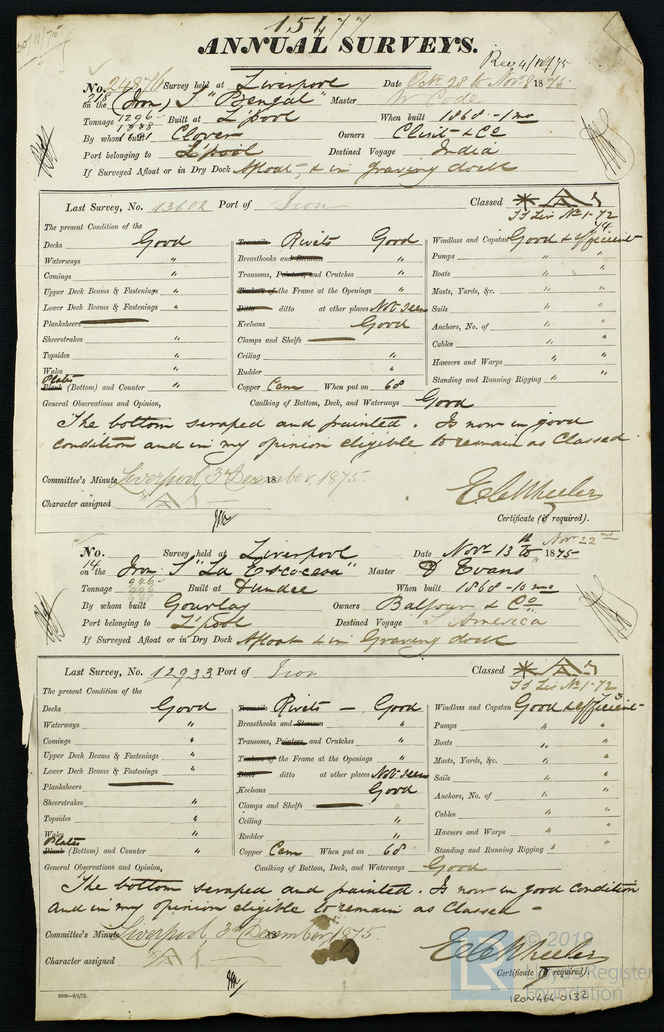 15477
30/11/75
ANNUAL SURVEYS.
Rec 4/12/75
No. 24876 Survey held at Liverpool Date Octr 28 to Novr 8 1875
218 on the (Iron) S "Bengal" Master McCode
Tonnage 1296 Built at L'pool When built 1868 - 1 mo
By whom built Clover Owners Clint & Co
Port belonging to L'pool Destined Voyage India
If Surveyed Afloat or in Dry Dock Afloat & in graving dock
Last Survey, No. 13602 Port of Iron Classed
SS Liv No 1-72
The present Condition of the
Decks Good Treenails Rivets Good Windlass and Capstan Good & efficient
Waterways " Breasthooks and Stemson " Pumps " "
Comings " Transoms, Pointers, and Crutches " Boats " "
Upper Deck Beams & Fastenings " Timbers of the Frame at the Openings " Masts, Yards, &c. " "
Lower Deck Beams & Fastenings " Ditto ditto at other places Not seen Sails " "
Planksheers Keelsons Good Anchors, No. of " "
Sheerstrakes " Clamps and Shelfs Cables " "
Topsides " Ceiling " Hawsers and Warps " "
Wales Rudder " Standing and Running Rigging " "
Plates Plank (Bottom) and Counter " Copper Cem When put on 68
General Observations and Opinion, Caulking of Bottom, Deck, and Waterways Good
The bottom scraped and painted. Is now in good
condition and in my opinion eligible to remain as Classed
Committee's Minute Liverpool, 3rd December, 1875.
Character assigned
E C Wheeler
Certificate (if required).
Novr 22nd
No. Survey held at Liverpool Date Novr 13th to 1875
14 on the Iron S "La Escocesa" Master D Evans
Tonnage 996 Built at Dundee When built 1868 - 10 mo
By whom built Gourlay Owners Balfour & Co
Port belonging to L'pool Destined Voyage S America
If Surveyed Afloat or in Dry Dock Afloat & in Graving dock
Last Survey, No. 12933 Port of Iron Classed
SS Liv No 1-72
The present Condition of the
Decks Good Treenails Rivets - Good Windlass and Capstan Good & efficient
Waterways " Breasthooks and Stemson " Pumps " "
Comings " Transoms, Pointers, and Crutches " Boats " "
Upper Deck Beams & Fastenings " Timbers of the Frame at the Openings " Masts, Yards, &c. " "
Lower Deck Beams & Fastenings " Ditto ditto at other places Not seen Sails " "
Planksheers Keelsons Good Anchors, No. of " "
Sheerstrakes " Clamps and Shelfs Cables " "
Topsides " Ceiling " Hawsers and Warps " "
Wales Rudder " Standing and Running Rigging " "
Plates Plank (Bottom) and Counter " Copper Cem When put on 68
General Observations and Opinion, Caulking of Bottom, Deck, and Waterways Good
The bottom scraped and painted. Is now in good condition
and in my opinion eligible to remain as Classed -
Committee's Minute Liverpool, 3rd December 1875.
Character assigned
E C Wheeler
Certificate (if required).
2000—9/5/72.
IRON464-0132
© 2019
Lloyd's Register
Foundation
LR